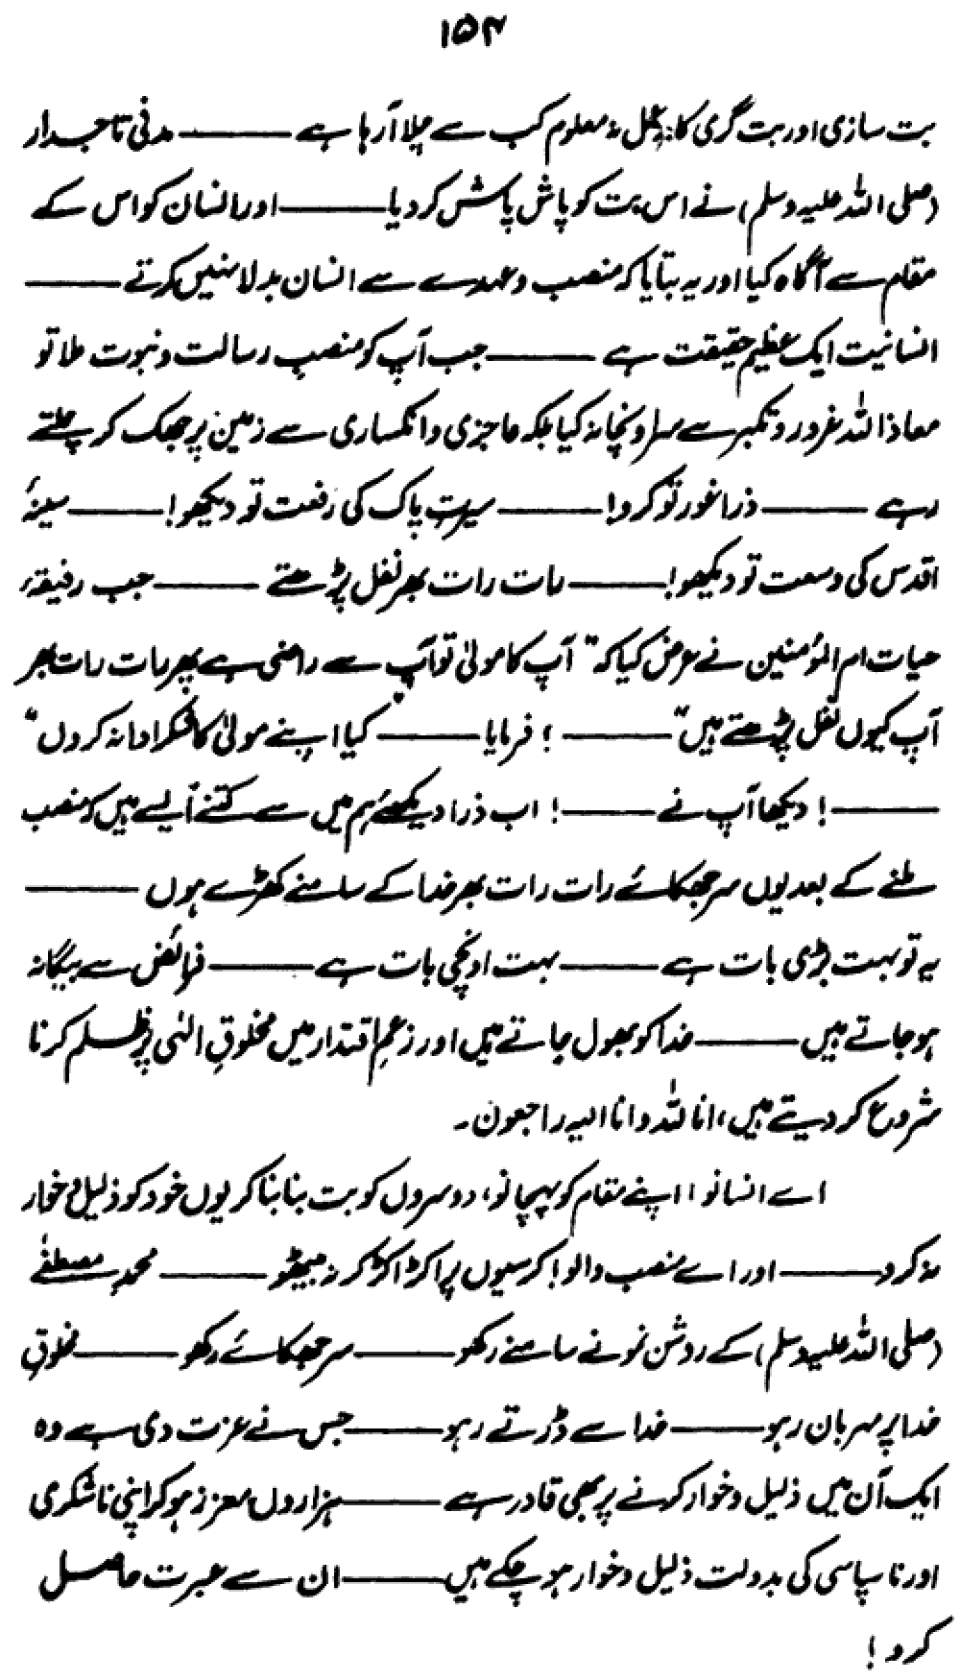 ۱۵۴
بت سازی اور بت گری کا یہ عمل نہ معلوم کب سے چلا آرہا ہے ——— مدنی تاجدار
(صلی اللہ علیہ وسلم) نے اس بت کو پاش پاش کر دیا ——— اور انسان کو اس کے
مقام سے آگاہ کیا اور یہ بتایا کہ منصب و عہدے سے انسان بدلا نہیں کرتے ———
انسانیت ایک عظیم حقیقت ہے ——— جب آپ کو منصب رسالت و نبوت ملا تو
معاذ اللہ غرور و تکبر سے سر اونچا نہ کیا بلکہ عاجزی و انکساری سے زمین پر جھک کر چلتے
رہے ——— ذرا غور تو کرو! ——— سیرت پاک کی رفعت تو دیکھو! ——— سینۂ
اقدس کی وسعت تو دیکھو! ——— رات رات بھر نفل پڑھتے ——— جب رفیقۂ
حیات ام المؤمنین نے عرض کیا کہ "آپ کا مولیٰ تو آپ سے راضی ہے پھر رات رات بھر
آپ کیوں نفل پڑھتے ہیں" ——— ! فرمایا ——— "کیا اپنے مولیٰ کا شکر ادا نہ کروں"
——— ! دیکھا آپ نے ——— ! اب ذرا دیکھئے ہم میں سے کتنے ایسے ہیں کہ منصب
ملنے کے بعد یوں سر جھکائے رات رات بھر خدا کے سامنے کھڑے ہوں ———
یہ تو بہت بڑی بات ہے ——— بہت اونچی بات ہے ——— فرائض سے بیگانہ
ہو جاتے ہیں ——— خدا کو بھول جاتے ہیں اور زعمِ اقتدار میں مخلوقِ الٰہی پر ظلم کرنا
شروع کر دیتے ہیں، انا للہ وانا الیہ راجعون۔
اے انسانو! اپنے مقام کو پہچانو، دوسروں کو بت بنا بنا کر یوں خود کو ذلیل و خوار
نہ کرو ——— اور اے منصب والو! کرسیوں پر اکڑ اکڑ کر نہ بیٹھو ——— محمد مصطفےٰ
(صلی اللہ علیہ وسلم) کے روشن نمونے سامنے رکھو ——— سر جھکائے رکھو ——— مخلوقِ
خدا پر مہربان رہو ——— خدا سے ڈرتے رہو ——— جس نے عزت دی ہے وہ
ایک آن میں ذلیل و خوار کرنے پر بھی قادر ہے ——— ہزاروں معزز ہو کر اپنی ناشکری
اور ناسپاسی کی بدولت ذلیل و خوار ہو چکے ہیں ——— ان سے عبرت حاصل
کرو!